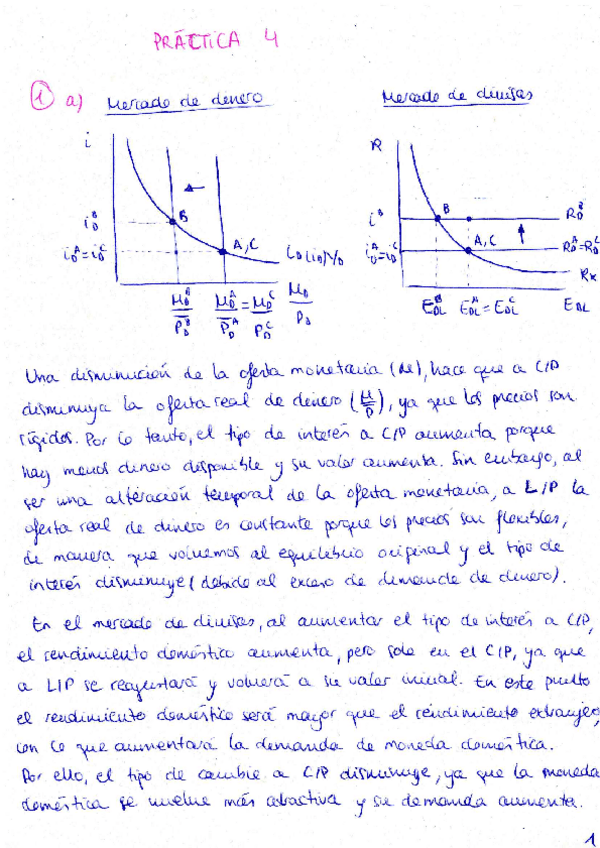 PRÁCTICA 4
① a) Mercado de dinero
Mercado de divisas
i
R
B
B
i_D^B
i^B
R_D^B
A, C
A, C
i_D^A = i_D^C
L_D(i_D)Y_D
i_D^A = i_D^C
R_D^A = R_D^C
R_x
M_D^B / P̅_D^B
M_D^A / P̅_D^A = M_D^C / P_D^C
M_D / P_D
E_DL^B
E_DL^A = E_DL^C
E_DL
Una disminución de la oferta monetaria (M), hace que a C/P
disminuya la oferta real de dinero (M/P), ya que los precios son
rígidos. Por lo tanto, el tipo de interés a C/P aumenta porque
hay menos dinero disponible y su valor aumenta. Sin embargo, al
ser una alteración temporal de la oferta monetaria, a L/P la
oferta real de dinero es constante porque los precios son flexibles,
de manera que volvemos al equilibrio original y el tipo de
interés disminuye (debido al exceso de demanda de dinero).
En el mercado de divisas, al aumentar el tipo de interés a C/P,
el rendimiento doméstico aumenta, pero solo en el C/P, ya que
a L/P se reajustará y volverá a su valor inicial. En este punto
el rendimiento doméstico será mayor que el rendimiento extranjero,
con lo que aumentará la demanda de moneda doméstica.
Por ello, el tipo de cambio a C/P disminuye, ya que la moneda
doméstica se vuelve más atractiva y su demanda aumenta.
1